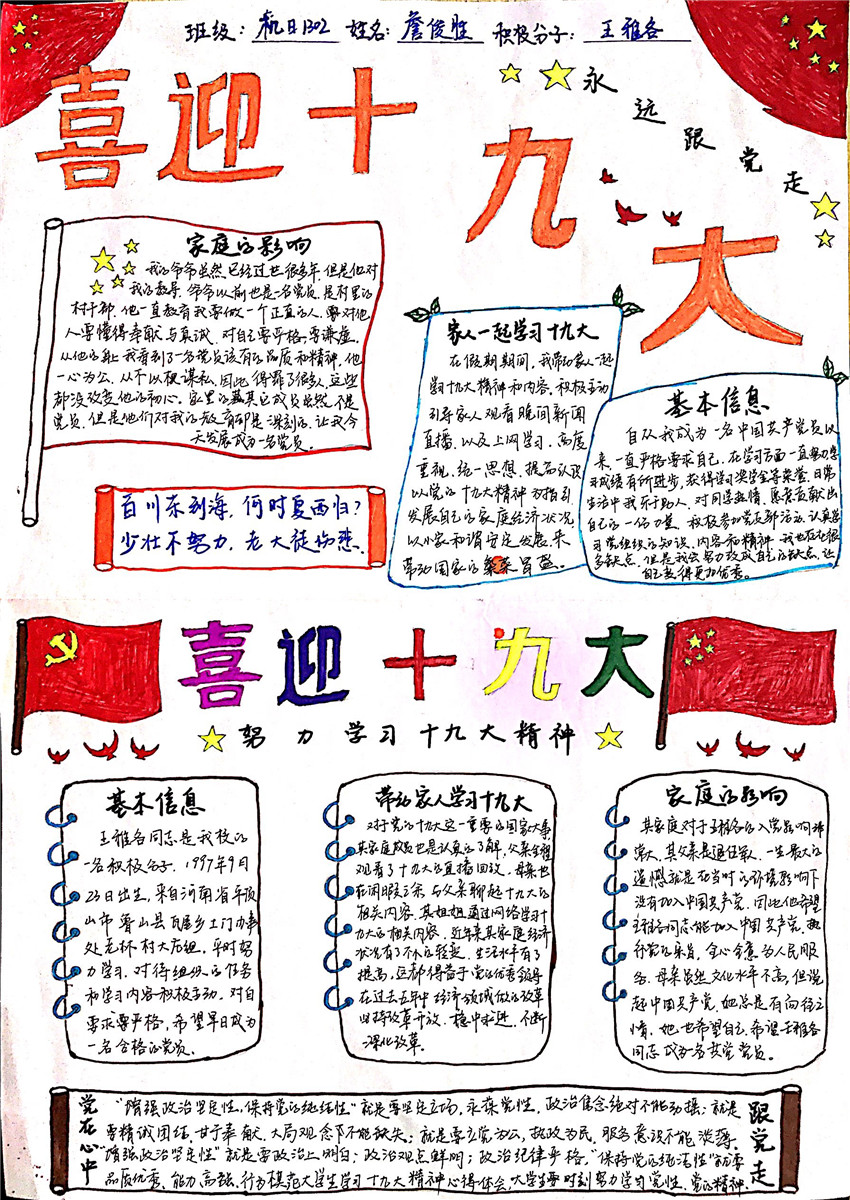 班级：机自1302 姓名：詹俊胜 积极分子：王雅各
喜迎十九大
永远跟党走
家庭的影响
我的爷爷虽然已经过世很多年,但是他对
我的教导,爷爷以前也是一名党员,是村里的
村干部,他一直教育我要做一个正直的人,要对他
人要懂得奉献与真诚,对自己要严格,要谦虚。
从他的身上我看到了一名党员该有的品质和精神,他
一心为公,从不以权谋私,因此得罪了很多人,这些
都没改变他的初心。家里的其它成员虽然不是
党员,但是他们对我的教育却是深刻的,让我今
天发展成为一名党员。
百川东到海,何时复西归?
少壮不努力,老大徒伤悲.
家人一起学习十九大
在假期期间,我带动家人一起
学习十九大精神和内容,积极主动
引导家人观看晚间新闻
直播,以及上网学习,高度
重视,统一思想,提高认识
以党的十九大精神为指引
发展自己的家庭经济状况
以小家和谐安定发展,来
带动国家的繁荣昌盛。
基本信息
自从我成为一名中国共产党员以
来,一直严格要求自己,在学习方面一直努力学
习成绩有所进步,获得学习奖学金等荣誉,日常
生活中我乐于助人,对同学热情,愿意贡献出
自己的一份力量,积极参加党支部活动,认真学
习党组织的知识、内容和精神,我也存在很
多缺点,但是我会努力改成自己的缺点,让
自己变得更加优秀。
喜迎十九大
努力学习十九大精神
基本信息
王雅各同志是我校的
一名积极分子,1997年9月
23日出生,来自河南省平顶
山市鲁山县瓦屋乡土门办事
处老林村大石组,平时努
力学习,对待组织的任务
和学习内容积极主动,对自
要求要严格,希望早日成为
一名合格的党员。
带动家人学习十九大
对于党的十九大这一重要的国家大事,
其家庭成员也是认真的了解,父亲全程
观看了十九大的直播回放,母亲也
在闲暇之余与父亲聊起十九大的
相关内容,其姐姐通过网络学习十
九大的相关内容,近年来其家庭经济
状况有了不小的转变,生活水平有了
提高,这都得益于党的优秀领导
在过去五年中经济领域做的改革
坚持改革开放、稳中求进,不断
深化改革。
家庭的影响
其家庭对于王雅各的入党影响非
常大,其父亲是退伍军人,一生最大的
遗憾就是在当时的环境影响下
没有加入中国共产党,因此他希望
王雅各同志能加入中国共产党,执
行党的条员,全心全意为人民服
务,母亲虽然文化水平不高,但说
起中国共产党,她总是有向往之
情,她也希望自己希望王雅各
同志成为一名共党党员。
党在心中
“增强政治坚定性,保持党的纯洁性”就是要坚定立场,永葆党性,政治信念绝对不能动摇;就是
要精诚团结,甘于奉献,大局观念下不能缺失;就是要立党为公,执政为民,服务意识不能淡薄,
“增强政治坚定性”就是要政治上明白;政治观点鲜明;政治纪律严格。“保持党的纯洁性”就要
品质优秀、能力高强、行为模范大学生学习十九大精神心得体会,大学生要时刻努力学习党性、党的精神.
跟党走